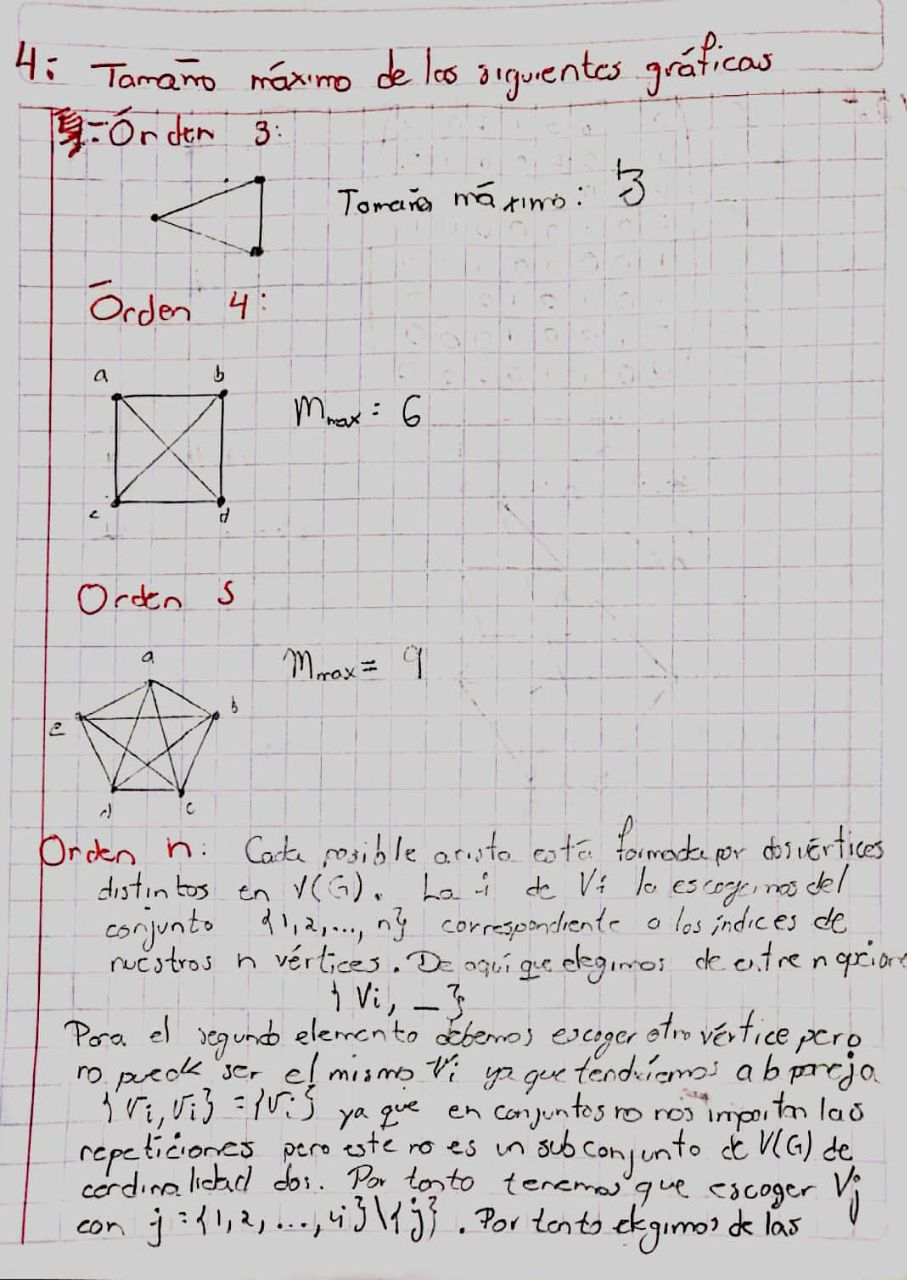 4: Tamaño máximo de las siguientes gráficas
- Orden 3:
Tamaño máximo: 3
Orden 4:
a b
M max = 6
c d
Orden 5
a
M max = 9
e b
d c
Orden n: Cada posible arista está formada por dos vértices
distintos en V(G). La i de Vi la escogemos del
conjunto {1,2,..., n} correspondiente a los índices de
nuestros n vértices. De aquí que elegimos de entre n
{ Vi, _ }
Para el segundo elemento debemos escoger otro vértice pero
no puede ser el mismo Vi ya que tendríamos a la pareja
{Vi,Vi} = {Vi} ya que en conjuntos no nos importan las
repeticiones pero este no es un subconjunto de V(G) de
cardinalidad dos. Por tanto tenemos que escoger Vj
con j = {1,2, ..., }\{j}. Por tanto elegimos de las